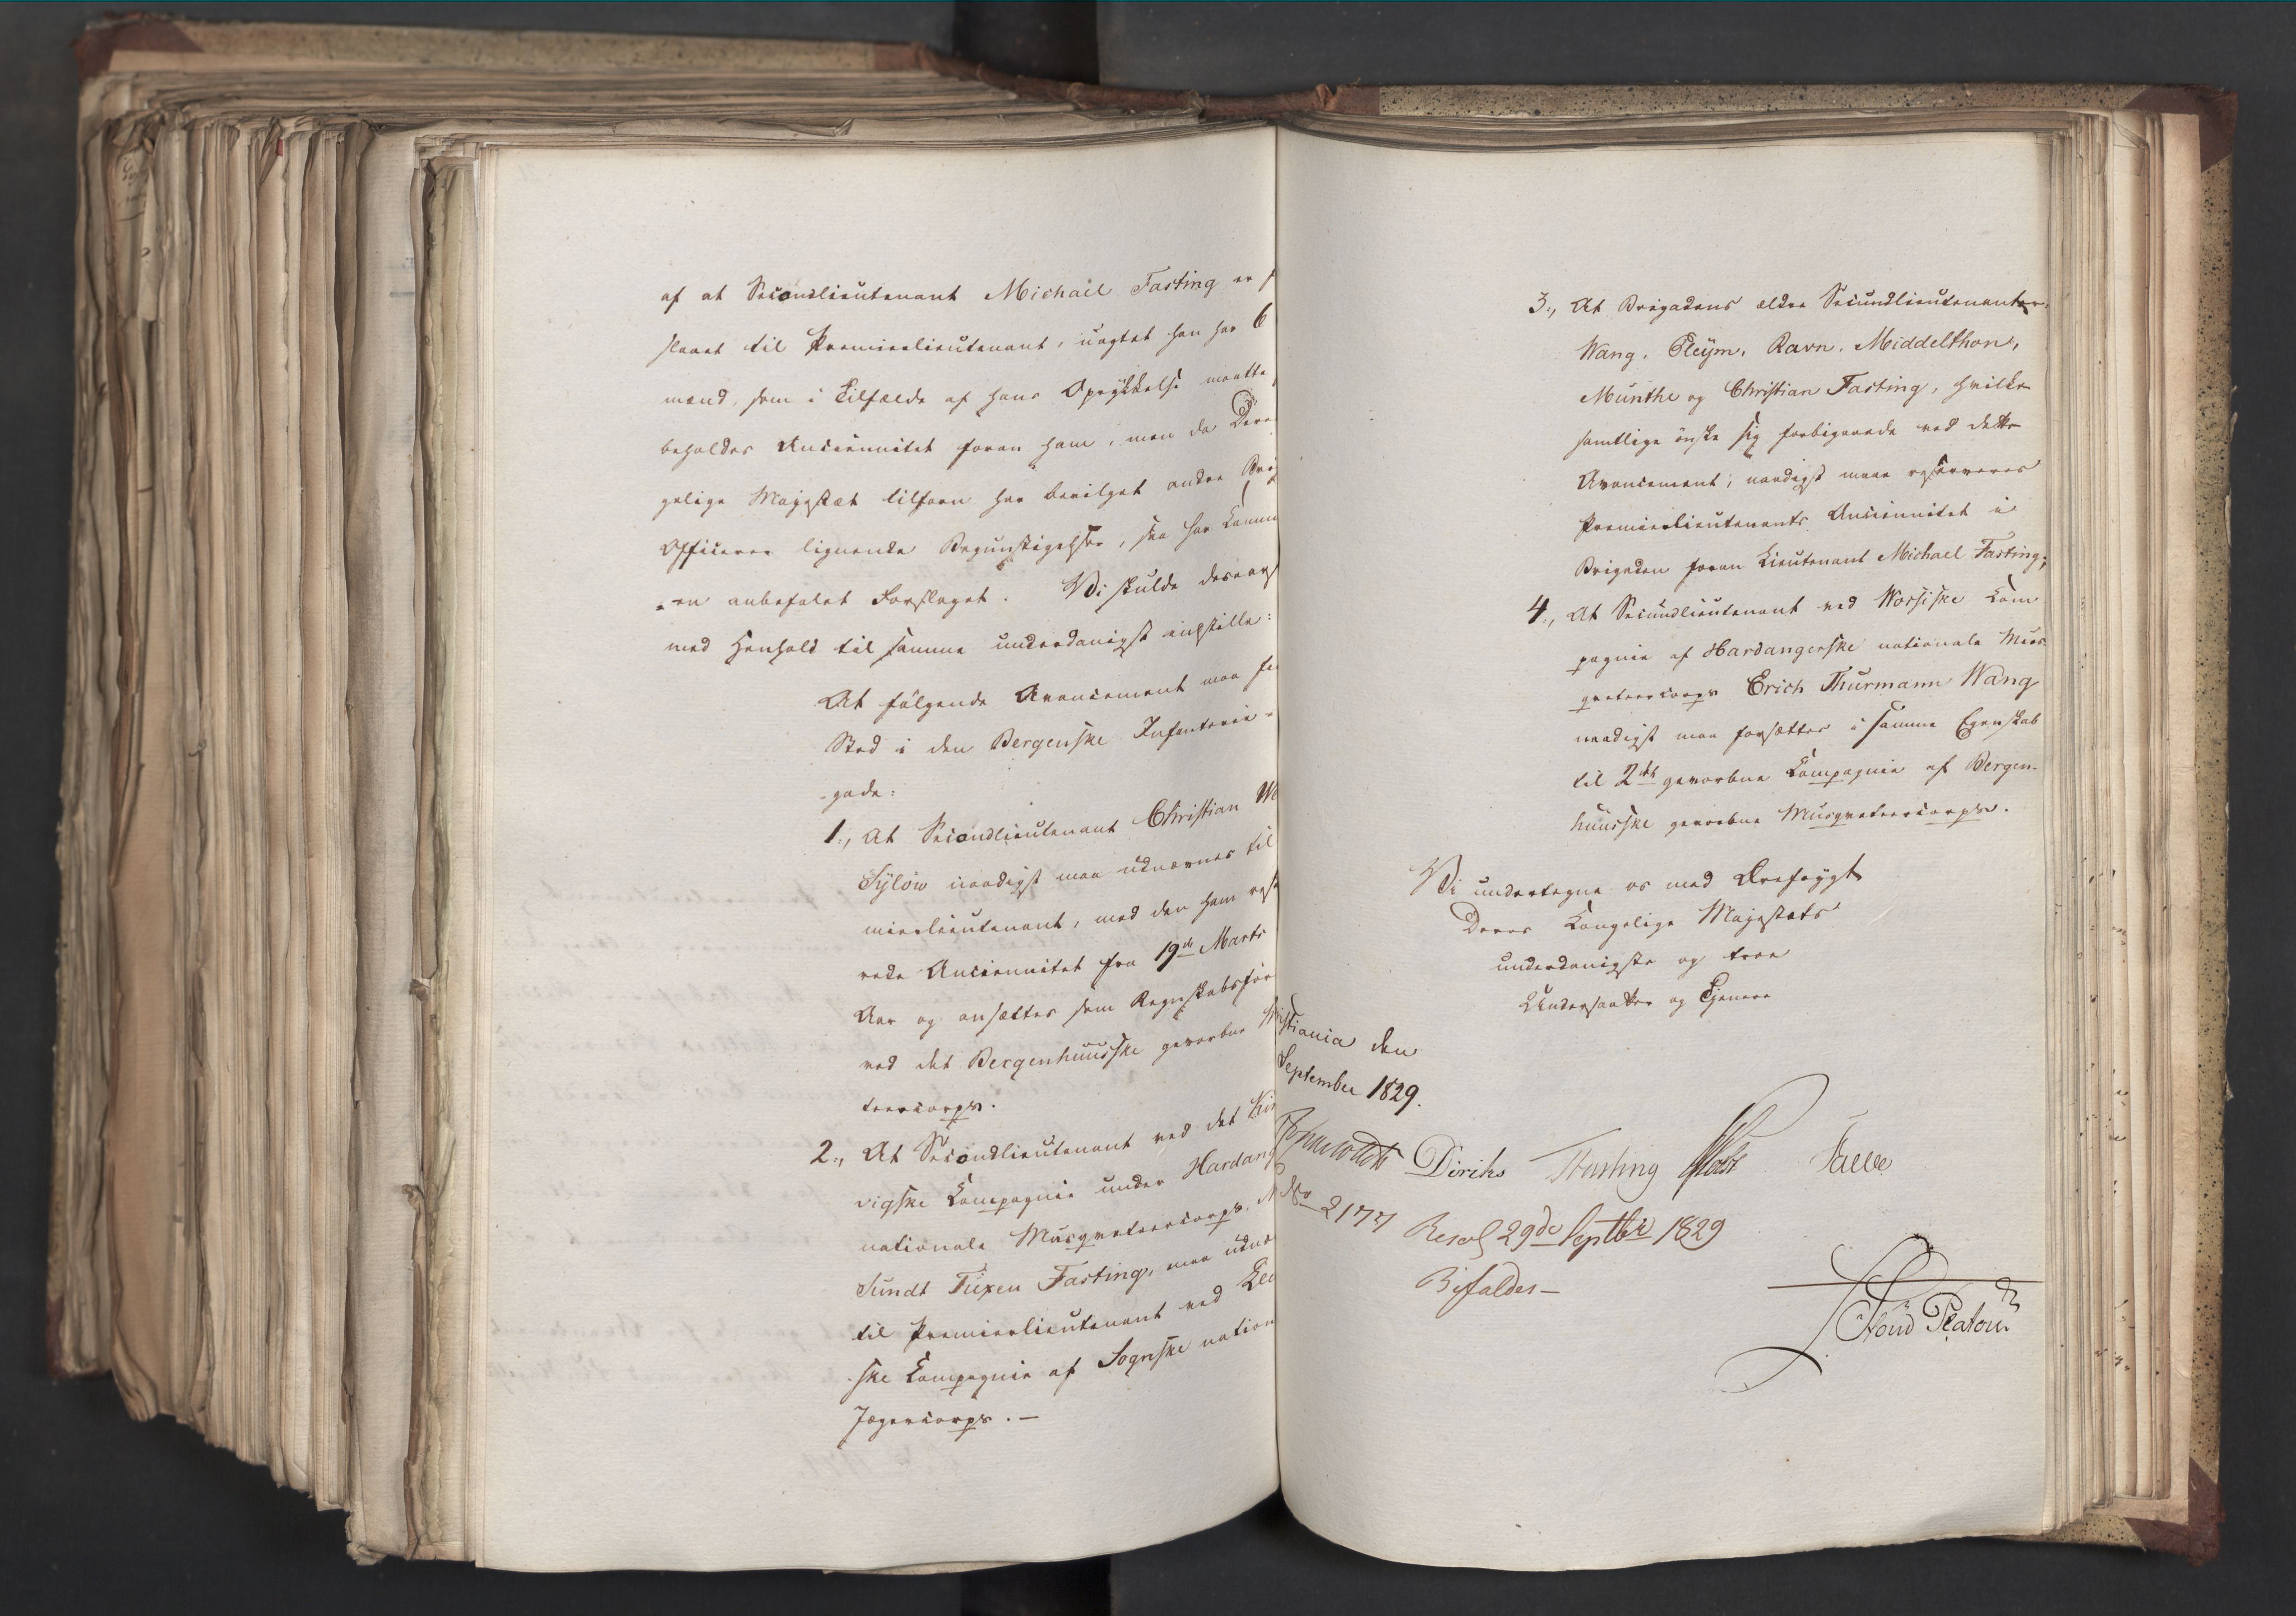 af at Secondlieutenant Michael Fasting er f
slaaet til Premierlieutenant, uagtet han har 6
mænd, som i Tilfælde af hans Oprykkelse maatte
beholde Anciennitet foran ham, men da Dere
gelige Majestæt tilforn har bevilget andre Bri
Officerer lignende Begunstigelser, saa har Comm
-en anbefalet Forslaget. Vi skulde desaars
med Henhold til samme underdanigst indstille:
At følgende Avancement maa fi
Sted i den Bergenske Infanterie-
-gade:
1., At Secondlieutenant Christian W
Sylow naadigst maa udnævnes til
mierlieutenant, med den ham res
rede Anciennitet fra 19de Marts
Aar og ansættes som Regnskabsfør
ved det Bergenhuusske gevorbne
teercorps.
2., At Secondlieutenant ved det Kin
vigske Compagnie under Hardang
nationale Musqueteercorps,
Sundt Tuxen Fasting, maa udnæ
til Premierlieutenant ved
ske Compagnie af Sognske nation
Jægercorps. —
3., At Brigadens ældre Secundlieutenanter
Wang, Pleym, Ravn, Middelthon,
Munthe og Christian Fasting, hvilke
samtlige ønske sig forbigaaede ved dette
Avancement, naadigst maae reserveres
Premierlieutenants Anciennitet i
Brigaden foran Lieutenant Michael Fasting;
4., At Secundlieutenant ved Wossiske Com
pagnie af Hardangerske nationale Mus
queteercorps Erich Thurmann Wang
naadigst maa forsættes i samme Egenskab
til 2det gevorbne Compagnie af Bergen-
huusske gevorbne Musqueteercorps.
Vi undertegne os med Ærefrygt
Deres Kongelige Majestæts
underdanigste og troe
Undersaatter og Tjenere
istiania den
September 1829.
Diriks Fasting Falbe
No 2177
Resol 29de Septbr 1829
Bifaldes —
Platou